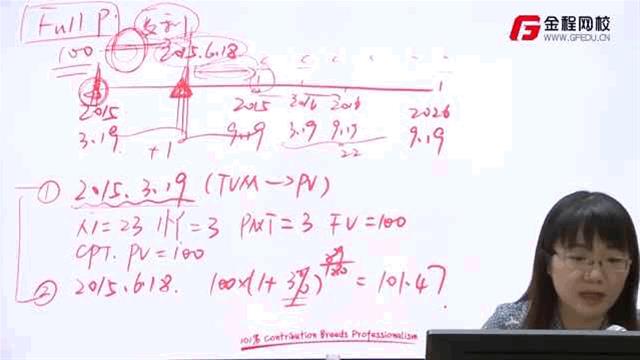 Full P.
100
2015.6.18
金程网校
WWW.GFEDU.CN
2015 2015 2016 2016 2026
3.19 9.19 3.19 9.19 9.19
+1 22
① 2015.3.19 (TVM→PV)
N=23 I/Y=3 PMT=3 FV=100
CPT. PV=100
② 2015.6.18. 100×(1+3%) = 101.47
101% Contribution Breeds Professionalism